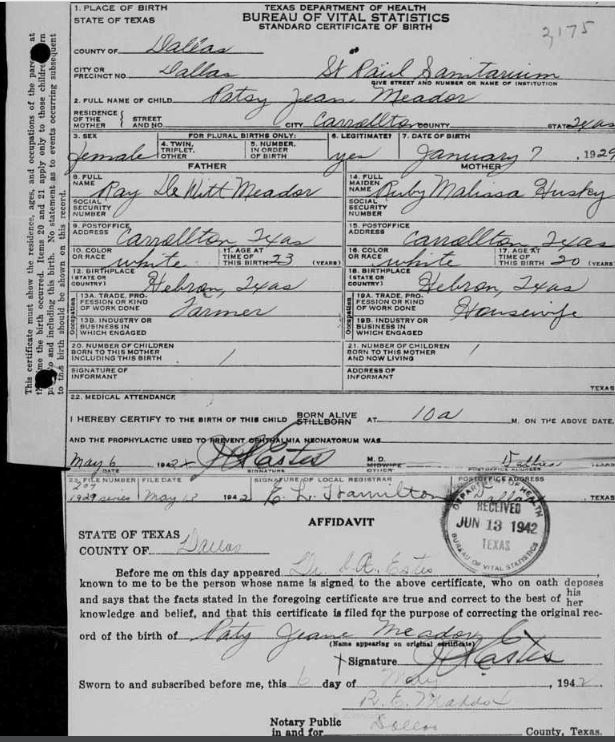 1. PLACE OF BIRTH
STATE OF TEXAS
TEXAS DEPARTMENT OF HEALTH
BUREAU OF VITAL STATISTICS
STANDARD CERTIFICATE OF BIRTH
3175
COUNTY OF Dallas
CITY OR PRECINCT NO. Dallas St Paul Sanitarium
GIVE STREET AND NUMBER OR NAME OF INSTITUTION
2. FULL NAME OF CHILD Patsy Jean Meador
RESIDENCE OF THE MOTHER { STREET AND NO. CITY Carrollton COUNTY STATE Texas
3. SEX female
FOR PLURAL BIRTHS ONLY:
4. TWIN, TRIPLET, OTHER
5. NUMBER, IN ORDER OF BIRTH
6. LEGITIMATE? yes
7. DATE OF BIRTH January 7, 1929
FATHER
MOTHER
8. FULL NAME Ray DeWitt Meador
14. FULL MAIDEN NAME Ruby Malissa Huskey
SOCIAL SECURITY NUMBER
SOCIAL SECURITY NUMBER
9. POSTOFFICE ADDRESS Carrollton Texas
15. POSTOFFICE ADDRESS Carrollton Texas
10. COLOR OR RACE white
11. AGE AT TIME OF THIS BIRTH 23 (YEARS)
16. COLOR OR RACE white
17. AGE AT TIME OF THIS BIRTH 20 (YEARS)
12. BIRTHPLACE (STATE OR COUNTRY) Hebron, Texas
18. BIRTHPLACE (STATE OR COUNTRY) Hebron, Texas
Occupation
13A. TRADE, PROFESSION OR KIND OF WORK DONE Farmer
Occupation
19A. TRADE, PROFESSION OR KIND OF WORK DONE Housewife
13B. INDUSTRY OR BUSINESS IN WHICH ENGAGED
19B. INDUSTRY OR BUSINESS IN WHICH ENGAGED
20. NUMBER OF CHILDREN BORN TO THIS MOTHER INCLUDING THIS BIRTH 1
21. NUMBER OF CHILDREN BORN TO THIS MOTHER AND NOW LIVING 1
SIGNATURE OF INFORMANT
ADDRESS OF INFORMANT
TEXAS
22. MEDICAL ATTENDANCE
I HEREBY CERTIFY TO THE BIRTH OF THIS CHILD BORN ALIVE STILLBORN AT 10a M. ON THE ABOVE DATE.
AND THE PROPHYLACTIC USED TO PREVENT OPHTHALMIA NEONATORUM WAS
May 6 1942 Estes M. D. MIDWIFE OTHER Dallas TEXAS
DATE SIGNATURE POSTOFFICE ADDRESS
23. FILE NUMBER FILE DATE SIGNATURE OF LOCAL REGISTRAR POSTOFFICE ADDRESS
1929 series May 1942 E. L. Hamilton Dallas TEXAS
AFFIDAVIT
DEPARTMENT OF HEALTH
RECEIVED
JUN 13 1942
TEXAS
BUREAU OF VITAL STATISTICS
STATE OF TEXAS
COUNTY OF Dallas
Before me on this day appeared Dr. Estes
known to me to be the person whose name is signed to the above certificate, who on oath deposes
and says that the facts stated in the foregoing certificate are true and correct to the best of his her
knowledge and belief, and that this certificate is filed for the purpose of correcting the original rec-
ord of the birth of Paty Jeane Meador
(Name appearing on original certificate)
Signature Estes
Sworn to and subscribed before me, this 6 day of May, 1942
R. E. Maddox
Notary Public in and for Dallas County, Texas.
This certificate must show the residence, ages, and occupations of the at
me the birth occurred. Items 20 and 21 apply only to those children
to and including this birth. No statement as to events occurring subsequent
to this birth should be shown on this record.